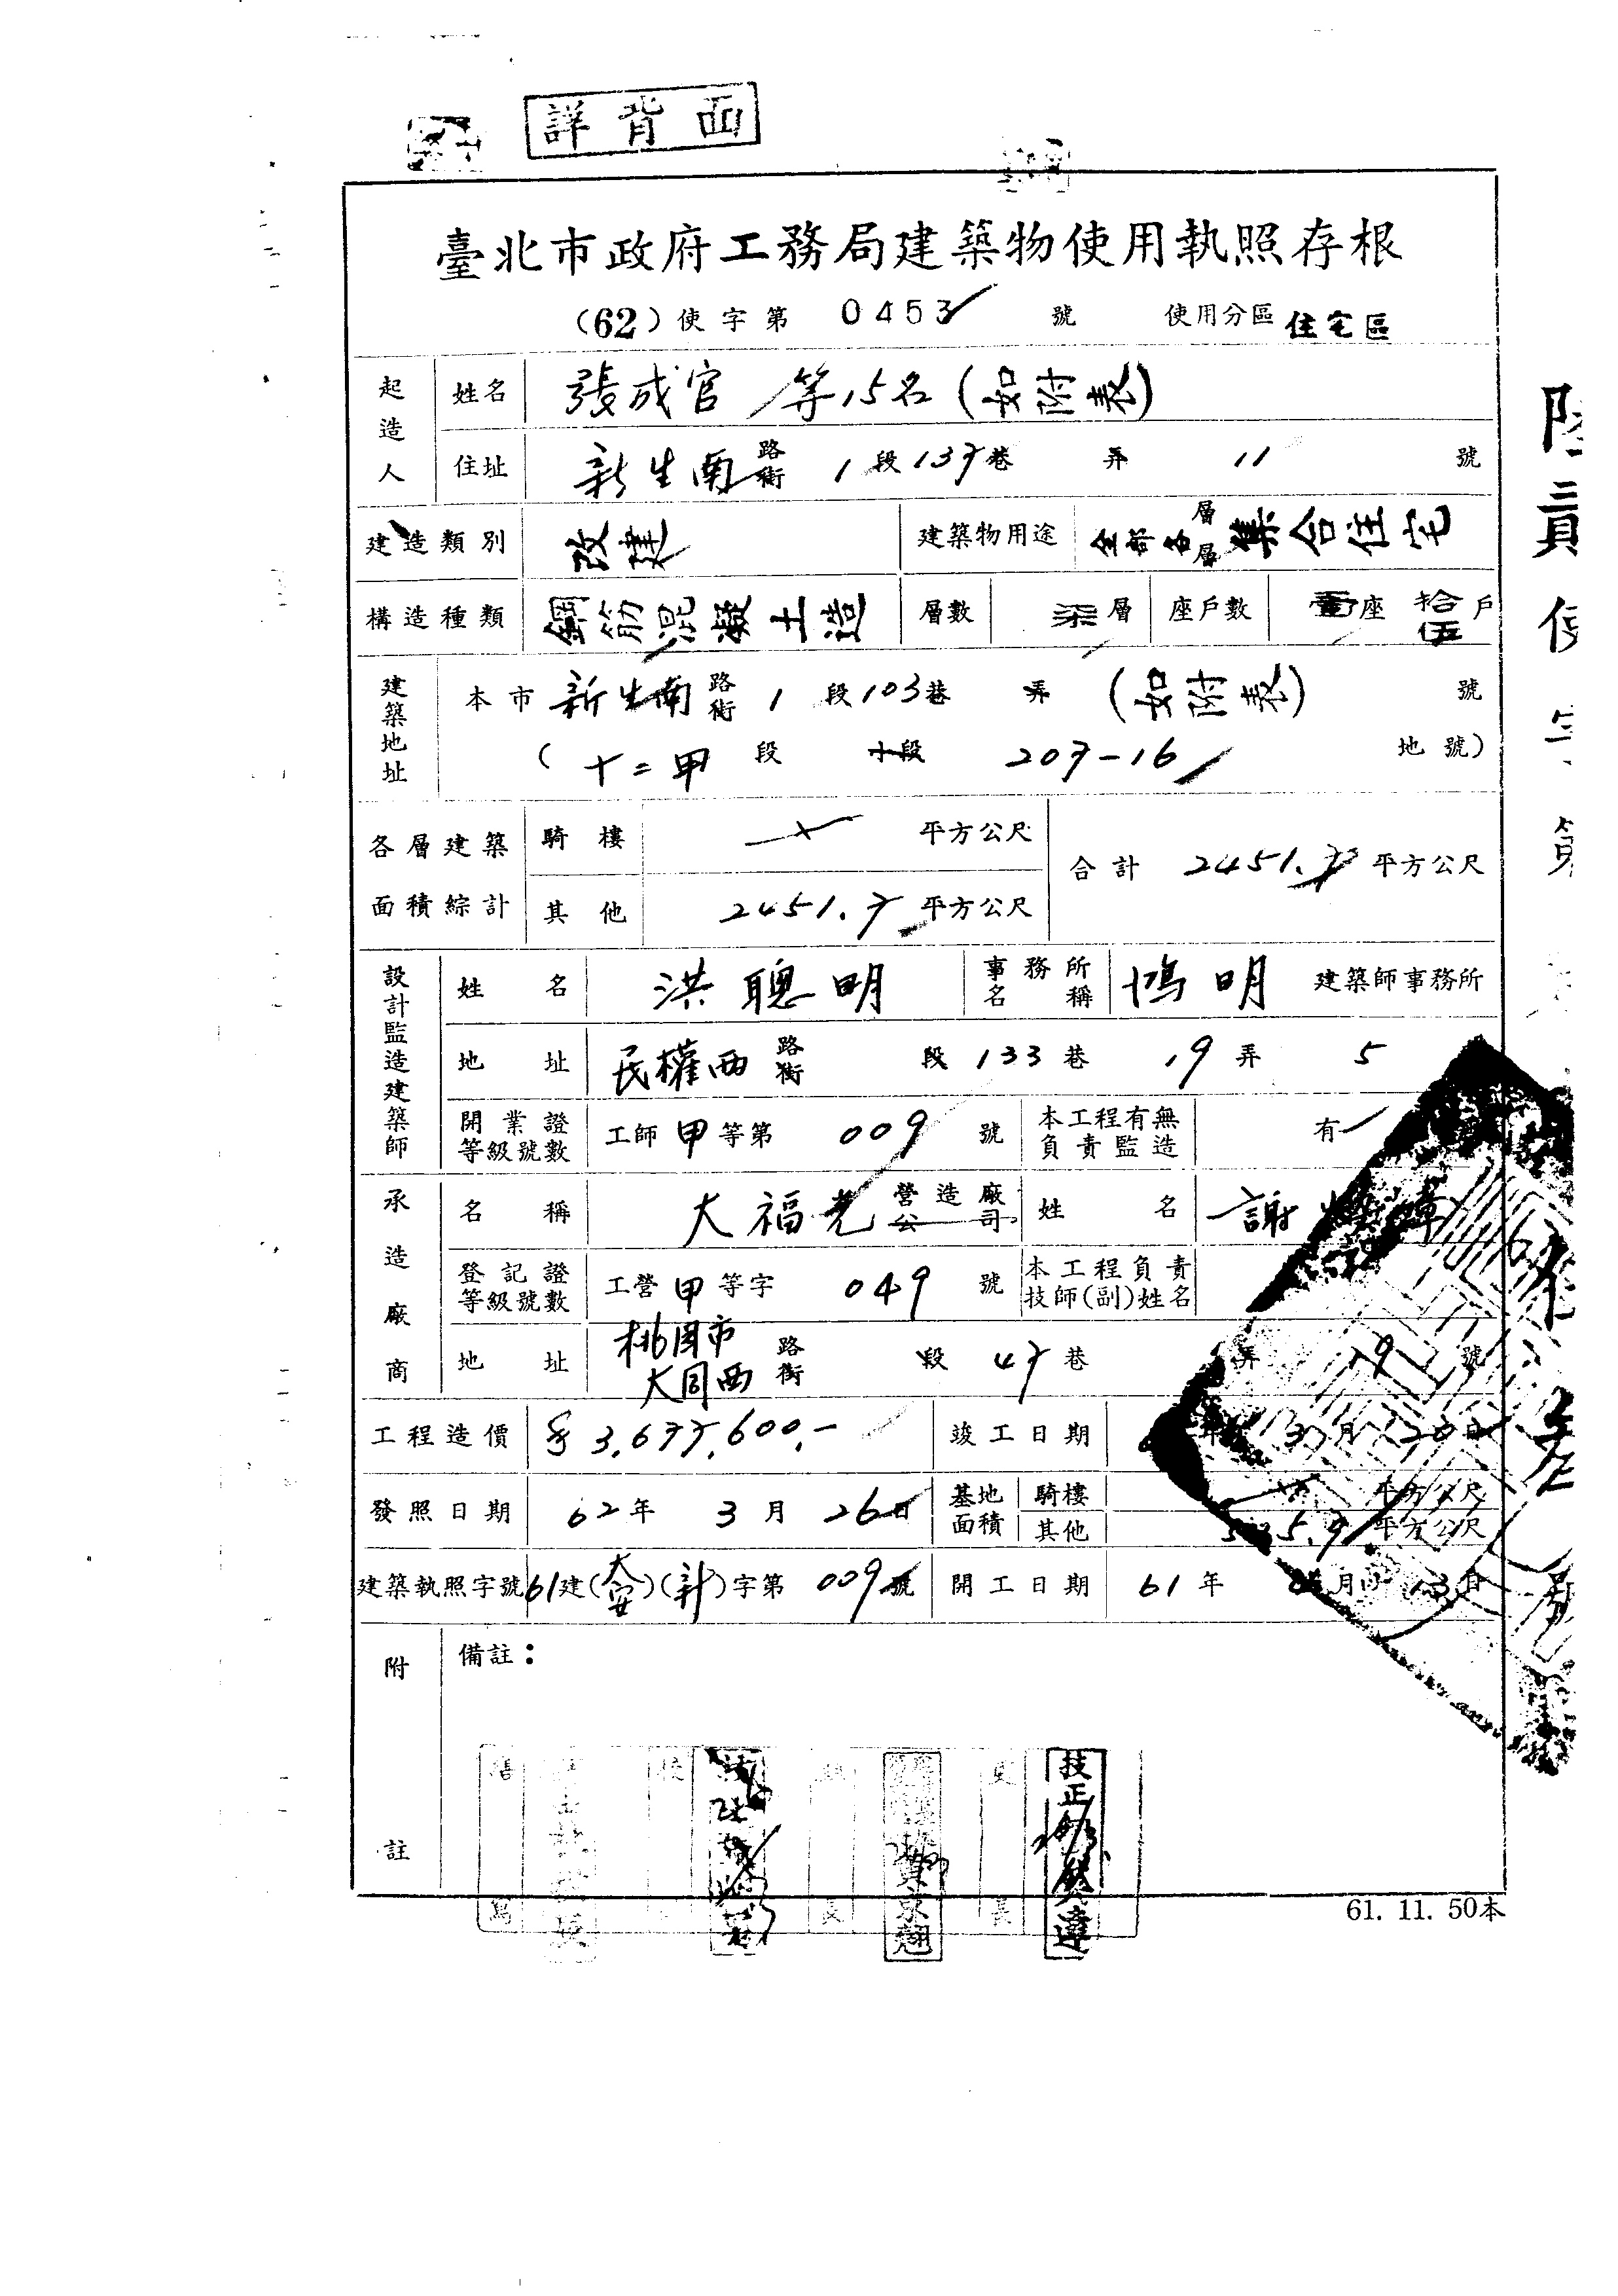 詳背面
臺北市政府工務局建築物使用執照存根
(62)使字第 0453 號 使用分區 住宅區
起造人 姓名 張成官 等15名(如附表)
住址 新生南 路街 1 段 137 巷 弄 11 號
建造類別 改建 建築物用途 全部各層層 集合住宅
構造種類 鋼筋混凝土造 層數 柒層 座戶數 壹座 拾伍戶
建築地址 本市 新生南 路街 1 段 103 巷 弄 (如附表) 號
( 十二甲 段 小段 207-16 地號)
各層建築面積綜計 騎樓 平方公尺 合計 2451.7 平方公尺
其他 2451.7 平方公尺
設計監造建築師 姓名 洪聰明 事務所名稱 鴻明 建築師事務所
地址 民權西 路街 段 133 巷 19 弄 5
開業證等級號數 工師 甲 等第 009 號 本工程有無負責監造 有
承造廠商 名稱 大福光 營造廠公司 姓名 謝
登記證等級號數 工營 甲 等字 049 號 本工程負責技師(副)姓名
地址 桃園市大同西 路街 段 47 巷 弄 19 號
工程造價 $3,677,600.- 竣工日期 年 3 月 20 日
發照日期 62 年 3 月 26 日 基地面積 騎樓 平方公尺
其他 5.9 平方公尺
建築執照字號 61建(大安)(新)字第 009 號 開工日期 61 年 月 13 日
附註 備註：
技正
61. 11. 50本